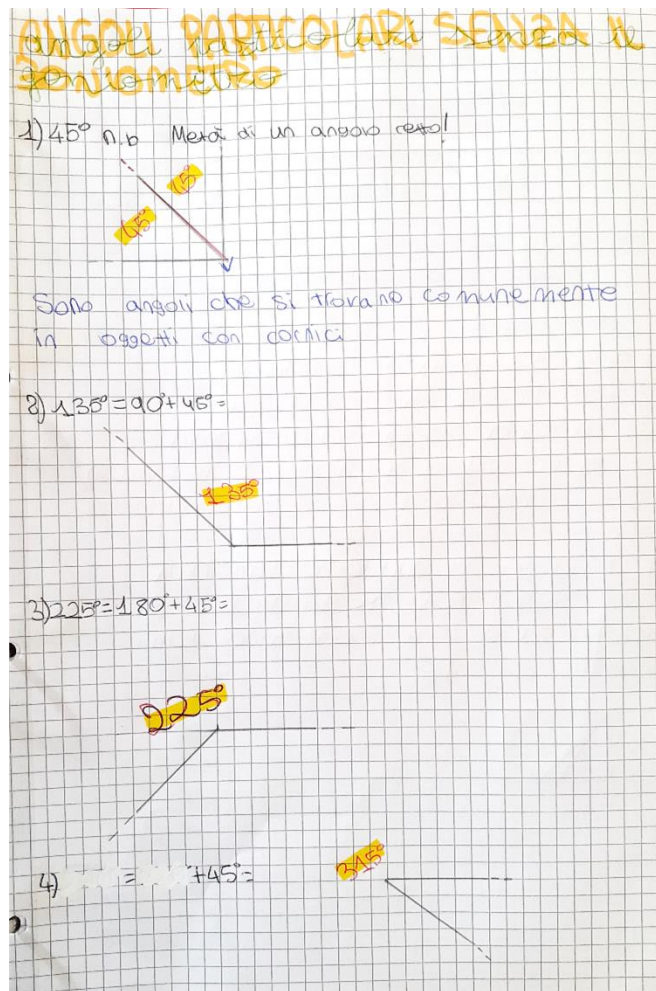 angoli PARTICOLARI SENZA il
goniometro
1) 45° n.b Metà di un angolo retto!
45°
45°
Sono angoli che si trovano comunemente
in oggetti con cornici
2) 135° = 90° + 45° =
135°
3) 225° = 180° + 45° =
225°
4) = + 45° =
315°